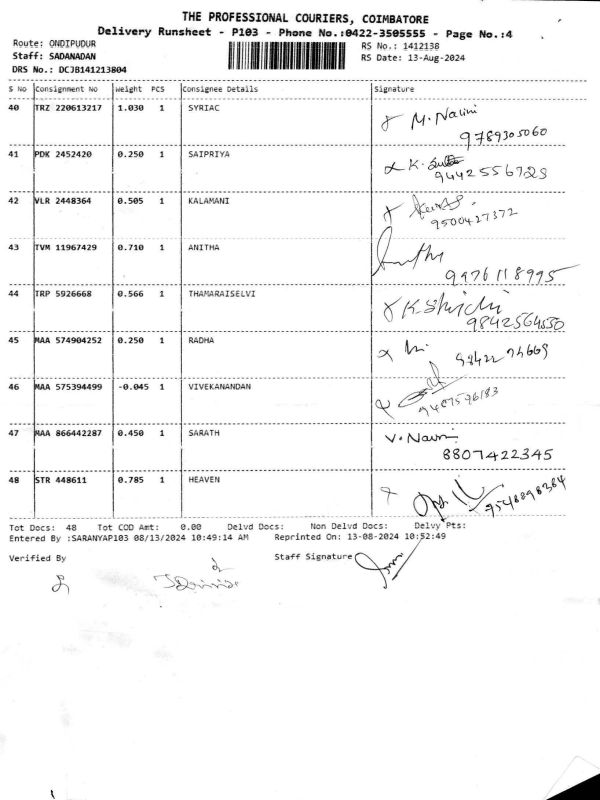 THE PROFESSIONAL COURIERS, COIMBATORE
Delivery Runsheet - P103 - Phone No.:0422-3505555 - Page No.:4
Route: ONDIPUDUR RS No.: 1412138
Staff: SADANADAN RS Date: 13-Aug-2024
DRS No.: DCJB141213804
S No Consignment No Weight PCS Consignee Details Signature
40 TRZ 220613217 1.030 1 SYRIAC M. Nalini
9789305060
41 PDK 2452420 0.250 1 SAIPRIYA K.
9442556729
42 VLR 2448364 0.505 1 KALAMANI
9500427372
43 TVM 11967429 0.710 1 ANITHA
9976118995
44 TRP 5926668 0.566 1 THAMARAISELVI
45 MAA 574904252 0.250 1 RADHA
46 MAA 575394499 -0.045 1 VIVEKANANDAN
47 MAA 866442287 0.450 1 SARATH V. Navni
8807422345
48 STR 448611 0.785 1 HEAVEN
Tot Docs: 48 Tot COD Amt: 0.00 Delvd Docs: Non Delvd Docs: Delvy Pts:
Entered By :SARANYAP103 08/13/2024 10:49:14 AM Reprinted On: 13-08-2024 10:52:49
Verified By Staff Signature